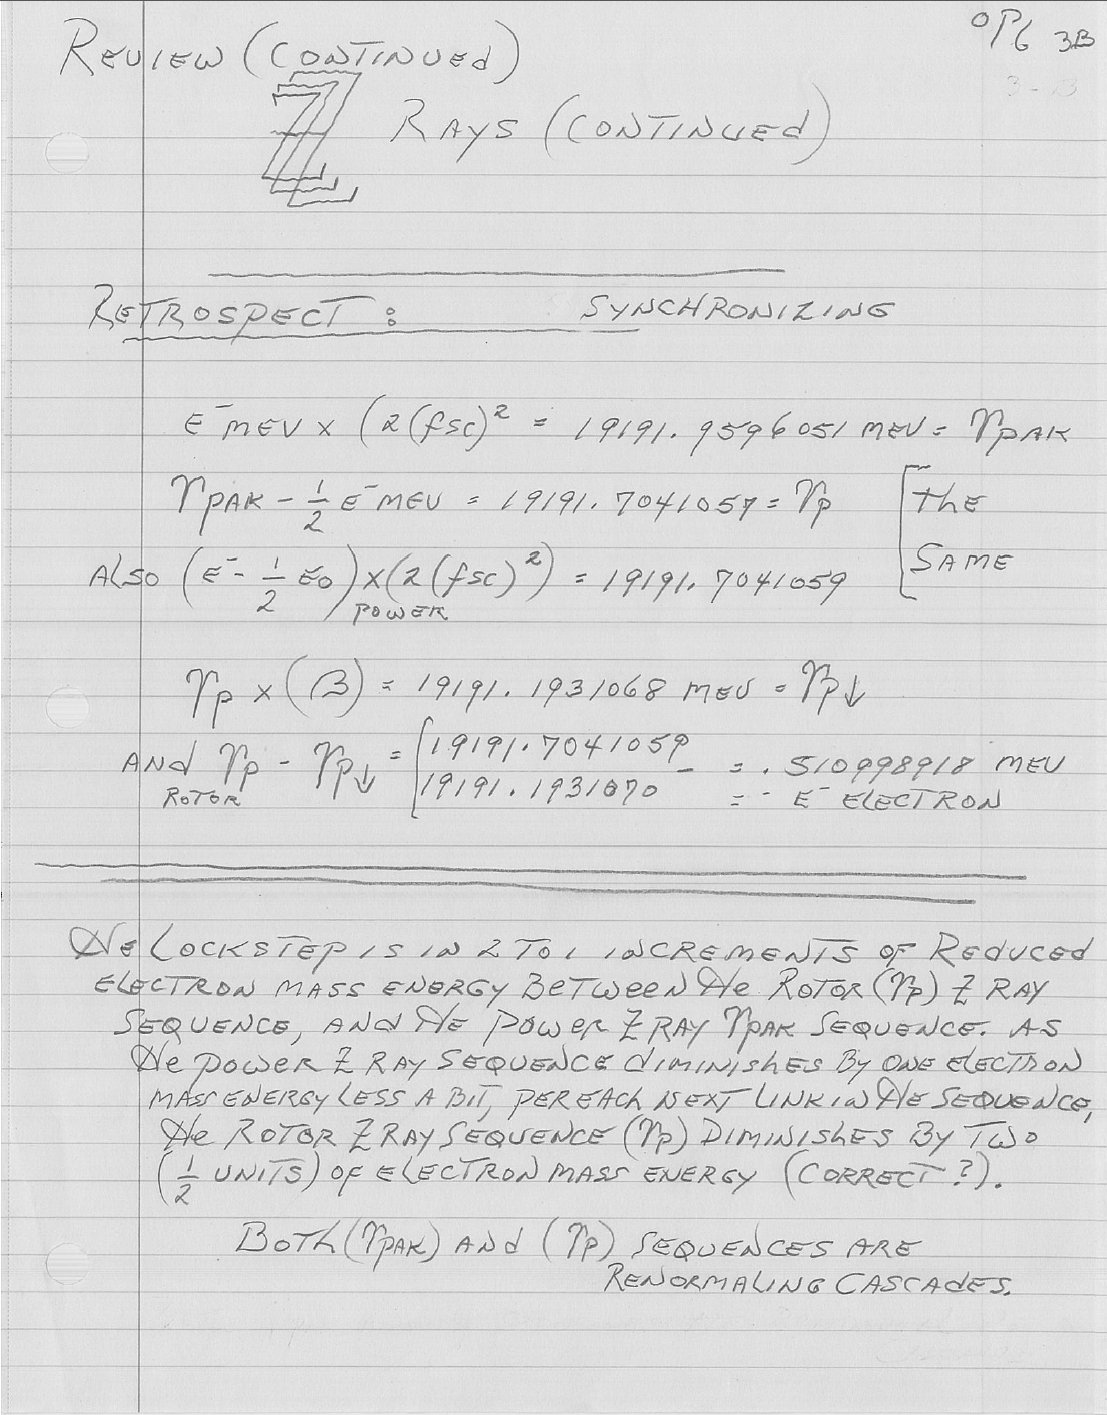 OPG 3B
3-B
REVIEW (CONTINUEd)
Z RAYS (CONTINUEd)
RETROSPECT: SYNCHRONIZING
E⁻MEV x (2(fsc)² = 19191.9596051 MEV = γPAK
γPAK - 1/2 E⁻MEV = 19191.7041057 = γp [THE
ALSO (E⁻ - 1/2 E0) x (2(fsc)²) = 19191.7041059 SAME
POWER
γp x (β) = 19191.1931068 MEV = γp↓
ANd γp - γp↓ = [19191.7041059
ROTOR 19191.1931070 - = .510998918 MEV
= - E⁻ ELECTRON
THe LOCKSTEP IS IN 2 TO 1 INCREMENTS OF REDUCED
ELECTRON MASS ENERGY BETWEEN THe ROTOR (γp) Z RAY
SEQUENCE, ANd THe POWER Z RAY γPAK SEQUENCE. AS
THe POWER Z RAY SEQUENCE dIMINISHES BY ONE ELECTRON
MASS ENERGY LESS A BIT, PER EACH NEXT LINK IN THe SEQUENCE,
THe ROTOR Z RAY SEQUENCE (γp) DIMINISHES BY TWO
(1/2 UNITS) OF ELECTRON MASS ENERGY (CORRECT?).
BOTH (γPAK) ANd (γp) SEQUENCES ARE
RENORMALING CASCAdES.